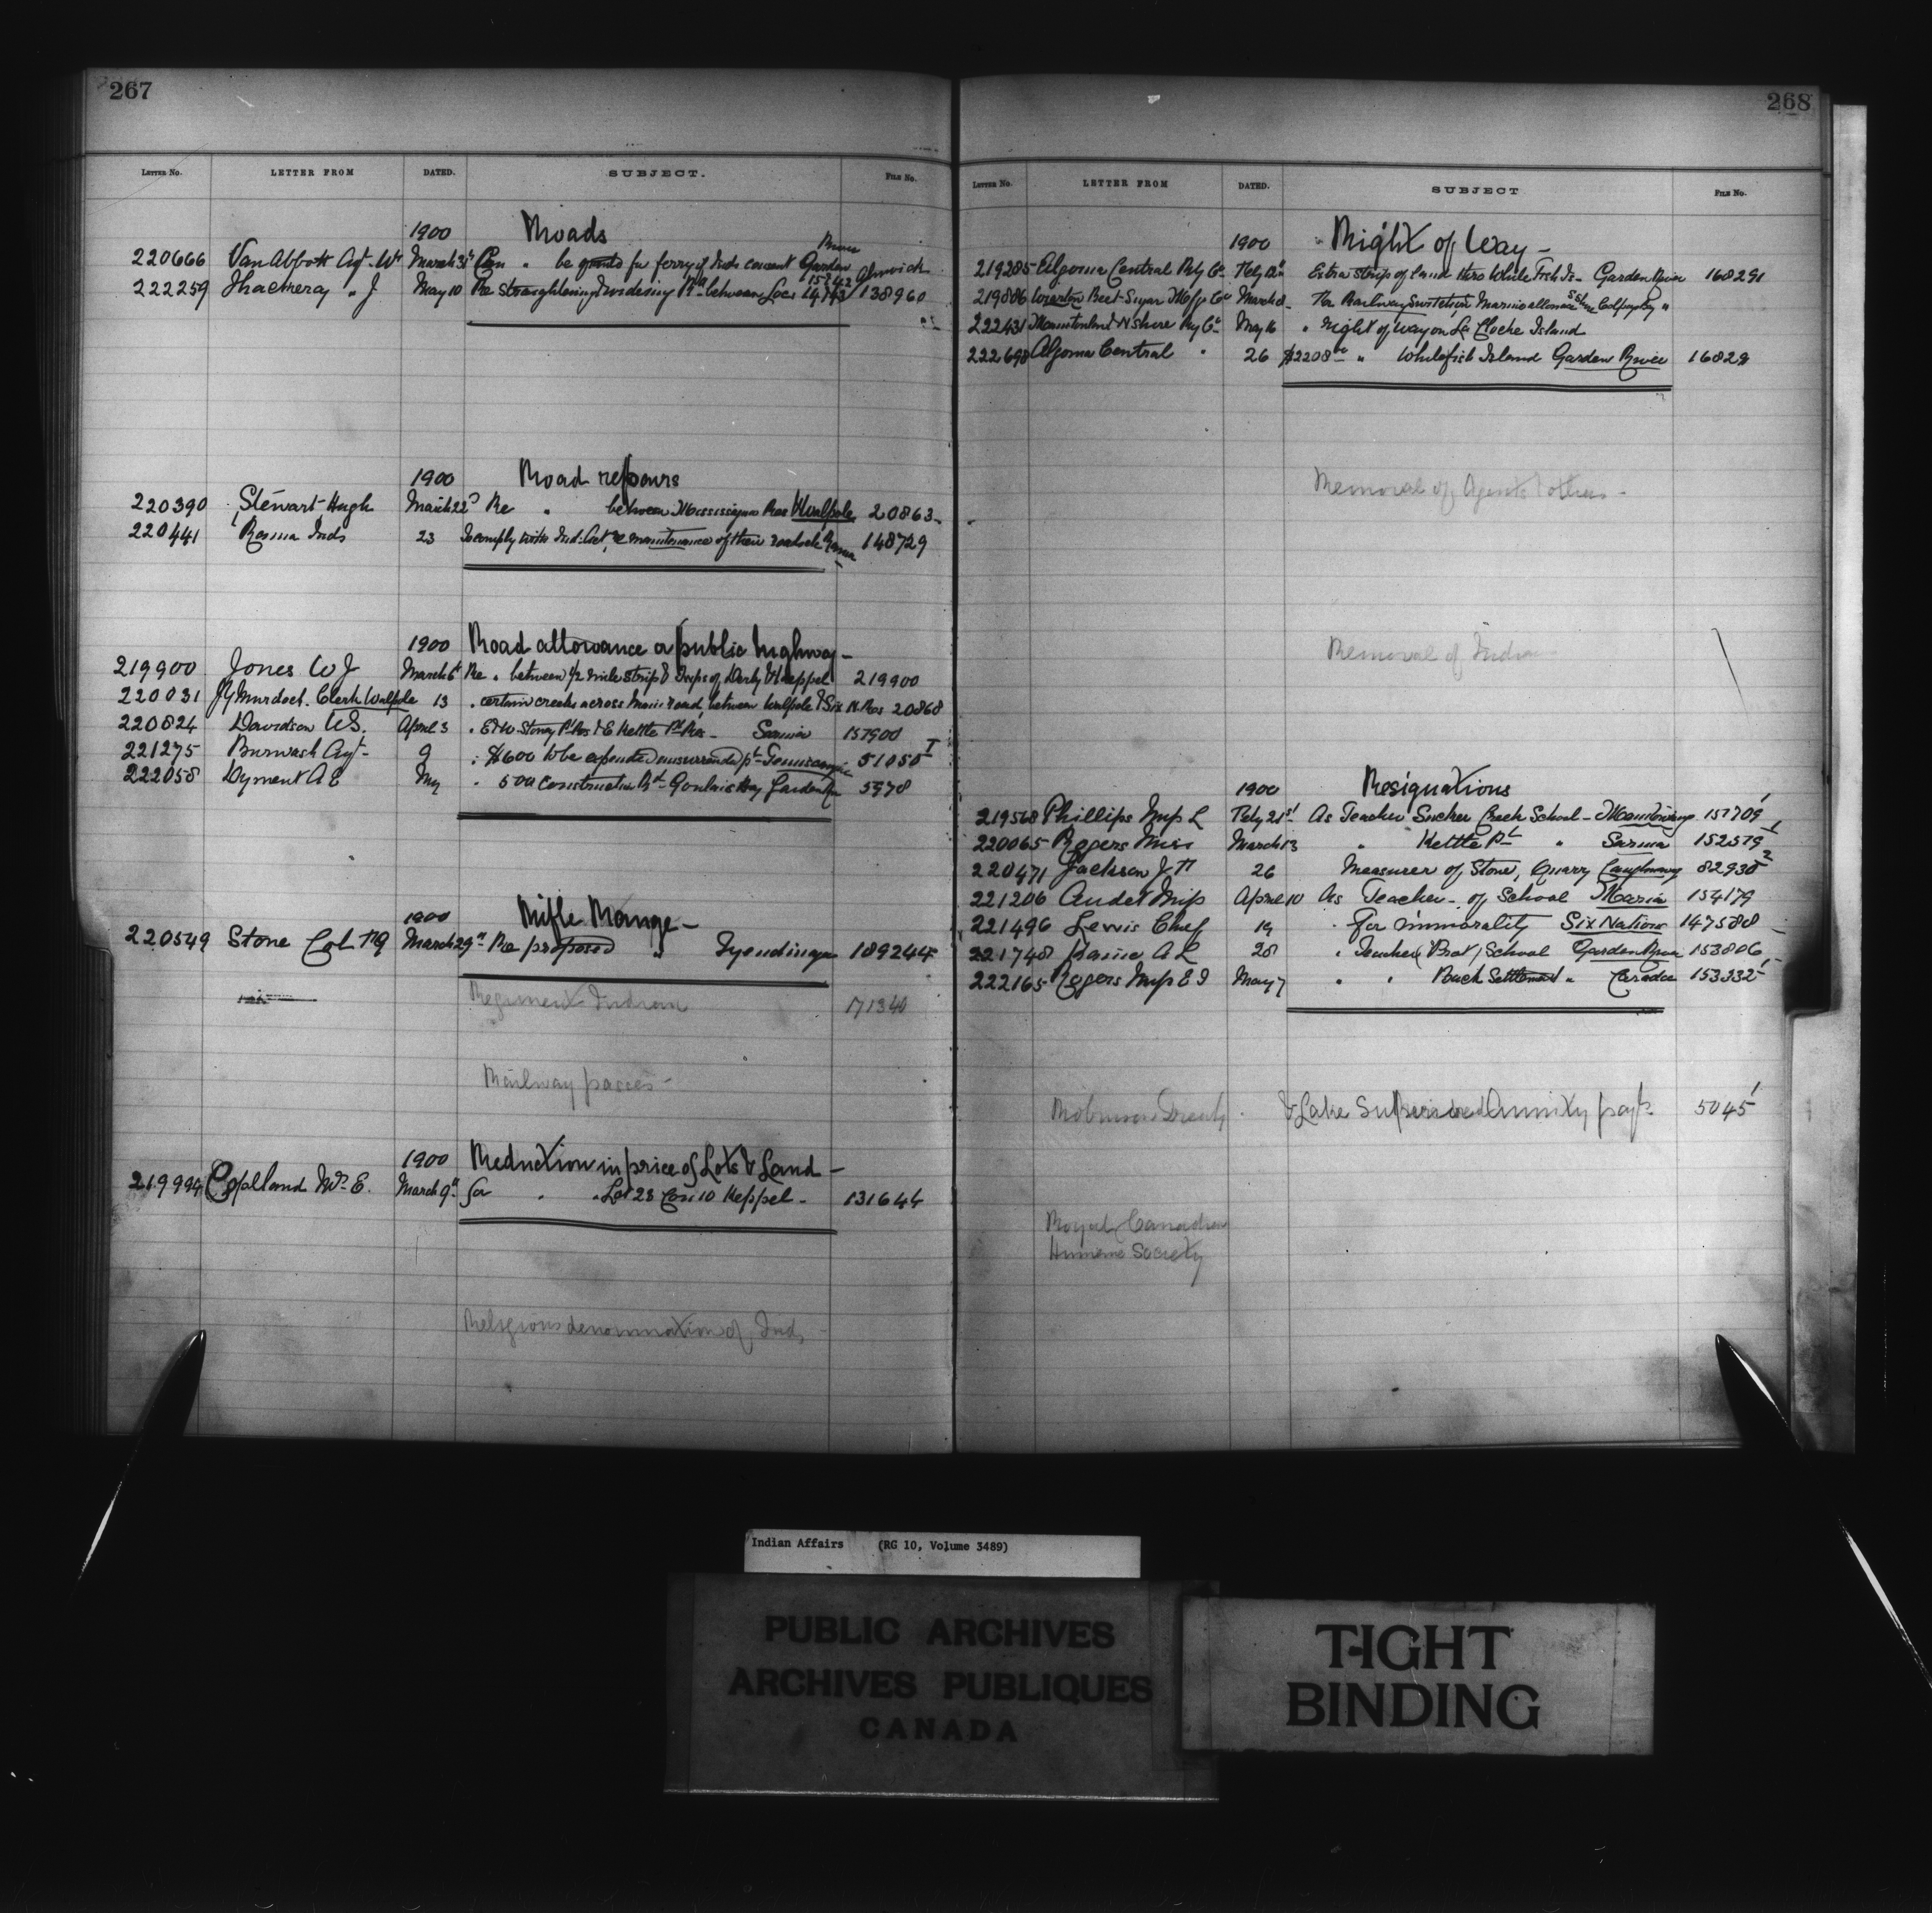 267
LETTER No. LETTER FROM DATED. SUBJECT. FILE No.
1900 Roads
220666 Van Abbott Agt. Wm March 31st Can " be granted for ferry if Inds consent Garden River
222259 Thackeray " J May 10 Re straightening & widening Rd between Locs Alnwick 138960
1900 Road repairs
220390 Stewart Hugh March 22d Re " between Mississagua Res & Walpole 20863
220441 Rama Inds 23 To comply with Ind. Act, re maintenance of their roads &c Rama 148729
1900 Road allowance or public highway -
219900 Jones W J March 6th Re " between 1/2 mile strip & Twps of Derby & Keppel 219900
220031 J Y Murdoch. Clerk Walpole 13 " certain creeks across Main road, between Walpole & Six N. Res 20868
220824 Davidson W S. April 3 " E & W. Stoney Pt Res & E Kettle Pt Res - Sarnia 157900
221275 Burwash Agt - 9 " $600 to be expended on surrendd pt - Temiscamingue 51050 I
222058 Dyment A E My " 500 Construction Rd Goulais Bay Garden Rr 5970
1900 Rifle Range -
220549 Stone Col. March 29th Re proposed " Tyendinaga 189244
Regiment Indian 171340
Railway passes -
1900 Reduction in price of Lots & Land -
219994 Copeland Mr. E. March 9th for " " Lot 28 Con 10 Keppel - 131644
Religious denomination of Inds
268
LETTER No. LETTER FROM DATED. SUBJECT FILE No.
1900 Right of Way -
219285 Algoma Central Rly Co. Feby 12th Extra strip of land thro White Fish Is - Garden River 168291
219886 Wiarton Beet-Sugar Mfg Co March 8 For Railway Switches, Marine allowance
222431 Manitoulin & N Shore Ry Co. May 16 " Right of way on La Cloche Island
222698 Algoma Central " 26 $2208 00 " Whitefish Island Garden River 16829
Removal of Agents & others -
Removal of Indians
1900 Resignations
219568 Phillips Miss L Feby 21st As Teacher Sucker Creek School - Manitowaning 151709
220065 Rogers Miss March 13 " Kettle Pt " Sarnia 152579
220471 Jackson J H 26 Measurer of Stone, Quarry Caughnawaga 82930 2
221206 Audet Miss April 10 As Teacher - of School Maria 154179
221496 Lewis Chief 19 " for immorality Six Nations 147588
221748 Kanie A L 28 " Teacher (Prot) School Garden River 153806
222165 Rogers Miss E I May 7 " " Back Settlement " Caradoc 153332
Robinson Treaty & Lake Superior Annuity payts. 5045
Royal Canadian
Humane Society
Indian Affairs (RG 10, Volume 3489)
PUBLIC ARCHIVES
ARCHIVES PUBLIQUES
CANADA
TIGHT
BINDING